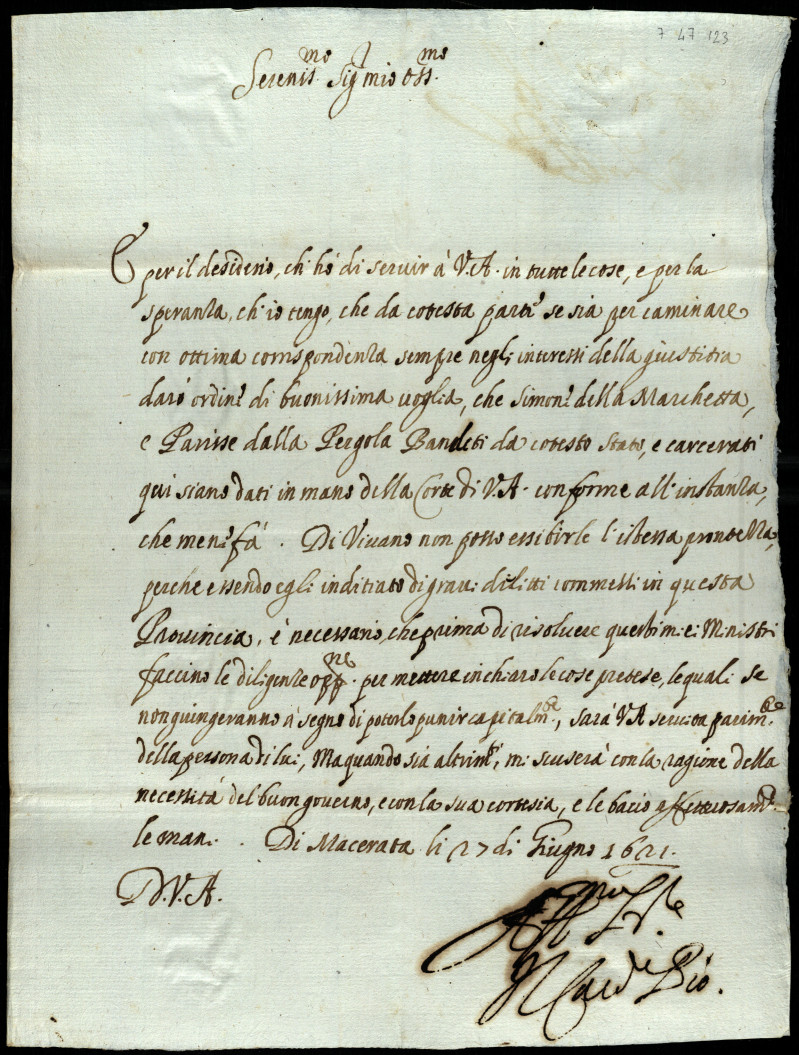 7 47 123
Serenis.mo Sig.r mio oss.mo
E per il desiderio, ch'hò di seruir à V.A. in tutte le cose, e per la
speranza, ch'io tengo, che da cotesta parte se sia per caminare
con ottima corrispondenza sempre negli interessi della giustitia
darò ordine di buonissima uoglia, che Simone della Marchetta,
e Parisse dalla Pergola Banditi da cotesto stato, e carcerati
qui siano dati in mano della Corte di V.A. conforme all'instanza,
che mene fà. Di Viuano non posso essibirle l'istessa prontezza,
perche essendo egli inditiato di graui dilitti commessi in questa
Prouincia, è necessario, che prima di risoluere questi miei Ministri
faccino le diligenze opp.ne per mettere in chiaro le cose pretese, lequali se
non giungeranno à segno di poterlo punir capitalm.te, sarà V.A. seruita parim.te
della persona di lui, Ma quando sia altrim.ti, mi scuserà con la ragione della
necessità del buon gouerno, e con la sua cortesia, e le bacio affettuosam.te
le mani. Di Macerata li 27 di Giugno 1621.
D.V.A.
Aff.mo Ser.re
Il Card.le Pio.